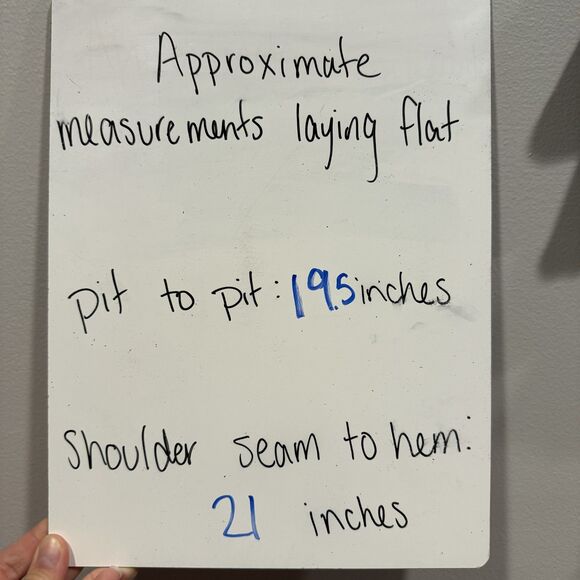 Approximate
measurements laying flat
pit to pit: 19.5 inches
Shoulder seam to hem:
21 inches